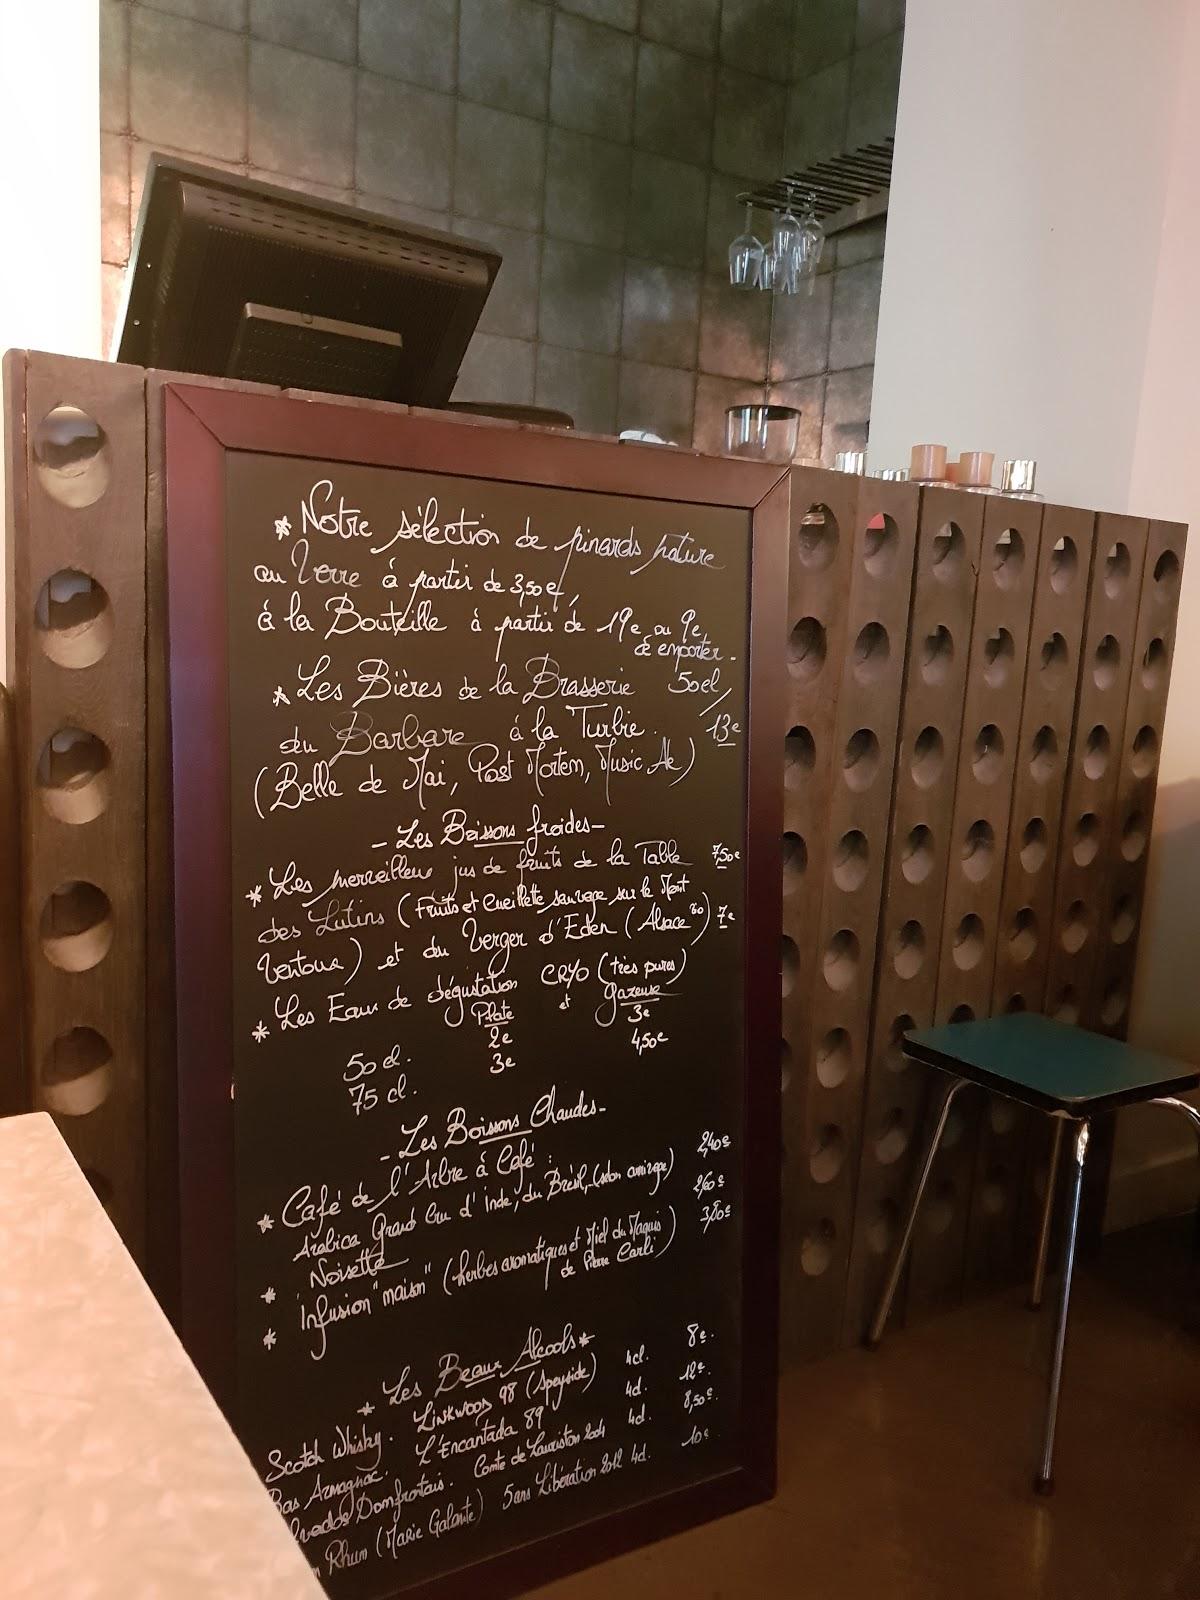 * Notre sélection de pinards nature
au Verre à partir de 3,50e,
à la Bouteille à partir de 19e ou 9e
à emporter.
* Les Bières de la Brasserie 50cl
du Barbare à la Turbie. 13e
(Belle de Mai, Post Mortem, Music Ale)
- Les Boissons froides -
* Les merveilleux jus de fruits de la Table 7,50e
des Lutins (Fruits et Cueillette sauvage sur le Mont
Ventoux) et du Verger d'Eden (Alsace) 7e
* Les Eaux de dégustation CRYO (très pures)
Plate et Gazeuse
50 cl. 2e 3e
75 cl. 3e 4,50e
- Les Boissons Chaudes -
* Café de l'Arbre à Café :
Arabica Grand Cru d'Inde, du Brésil, (selon arrivage) 2,40e
* Noisette 2,60e
* Infusion "maison" (herbes aromatiques et Miel du Maquis 3,80e
de Pierre Carli)
* Les Beaux Alcools *
Scotch Whisky. Linkwood 98 (Speyside) 4cl. 8e.
Bas Armagnac. L'Encantada 89 4cl. 12e.
Domfrontais. Comte de Lauriston 2004 4cl. 8,50e.
Rhum (Marie Galante) Sans Libération 2012 4cl. 10e